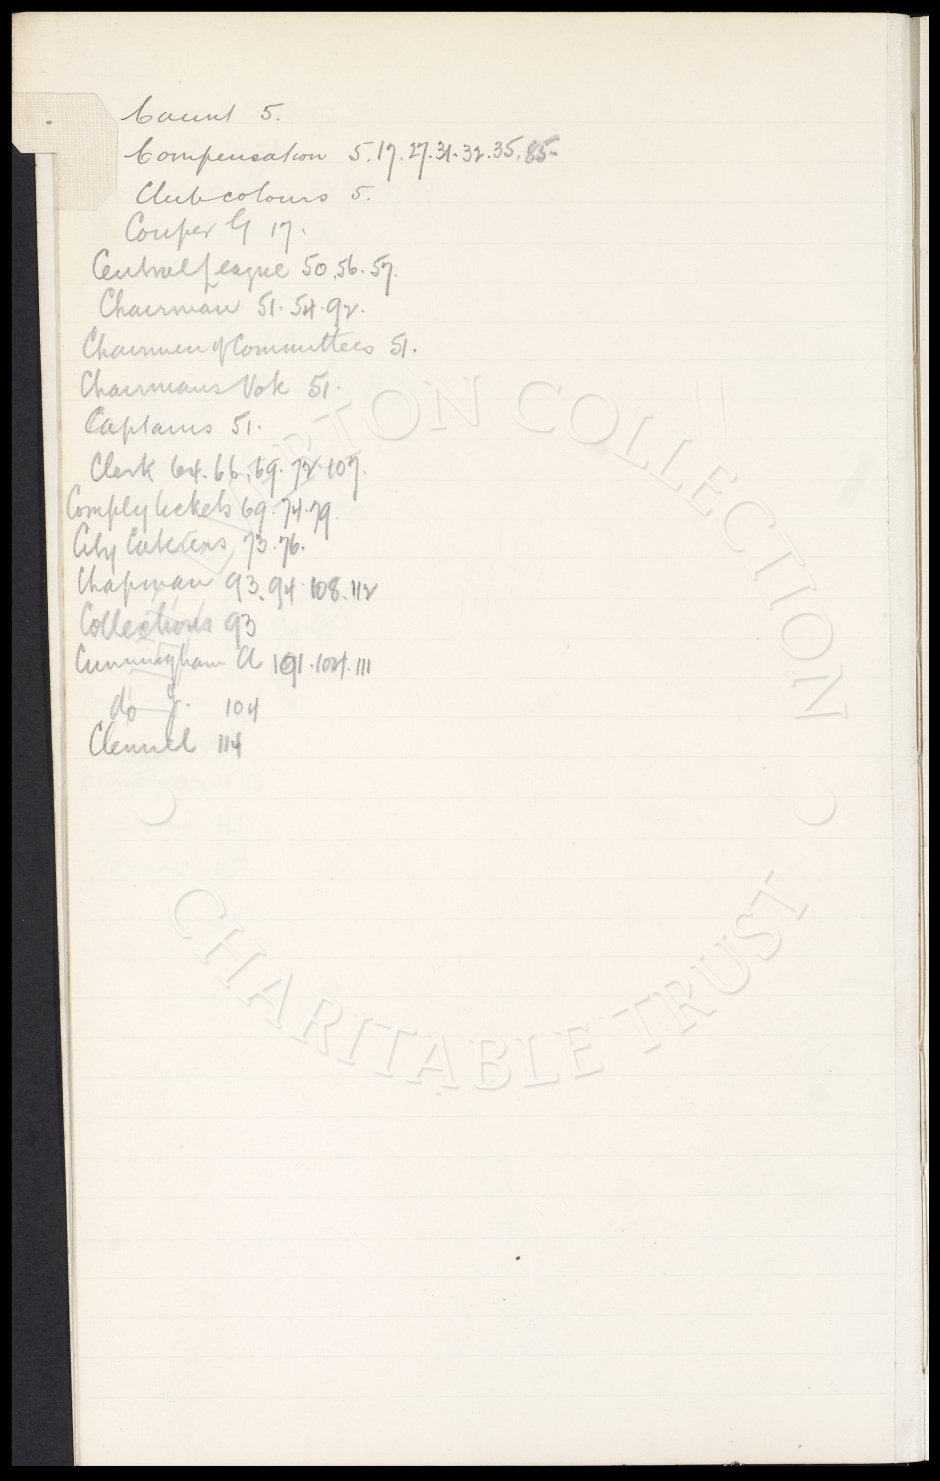 Caunt 5.
Compensation 5.17.27.31.32.35.85.
Club colours 5.
Couper G 17.
Central League 50.56.57.
Chairman 51.54.92.
Chairmen of Committees 51.
Chairmans Vote 51.
Captains 51.
Clerk 64.66.69.72.107.
Comply tickets 69.74.79.
City Caterers 73.76.
Chapman 93.94.108.112
Collections 93
Cunningham A 101.104.111
do J. 104
Clennel 114
EVERTON COLLECTION
CHARITABLE TRUST